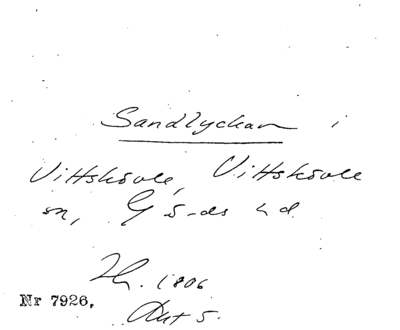 Sandlyckan i
Vittskövle, Vittskövle
sn, Gärds hd.
1806
Nr 7926.
Akt 5.